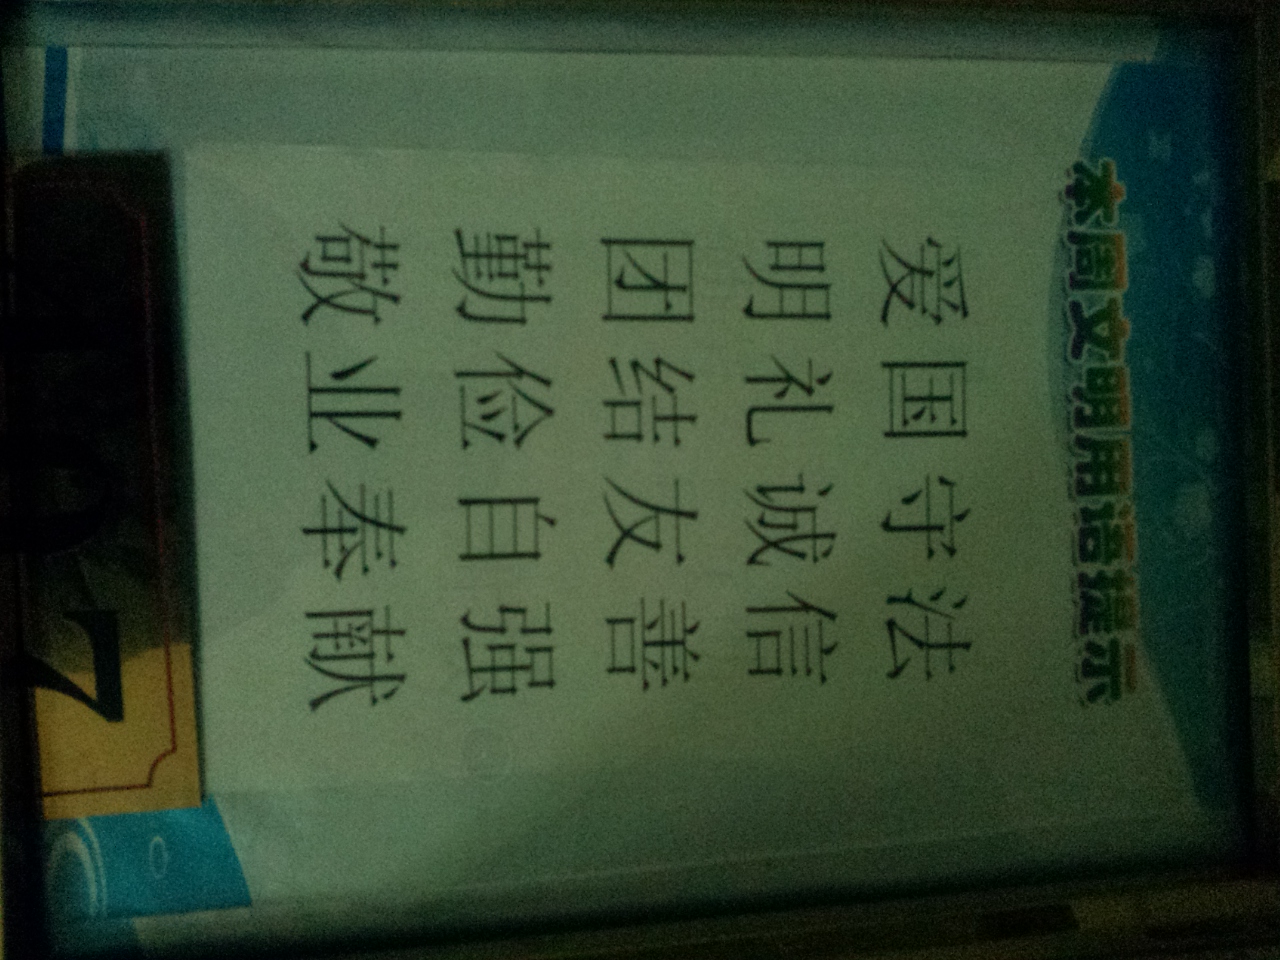 本周文明用语提示
爱国守法
明礼诚信
团结友善
勤俭自强
敬业奉献
7